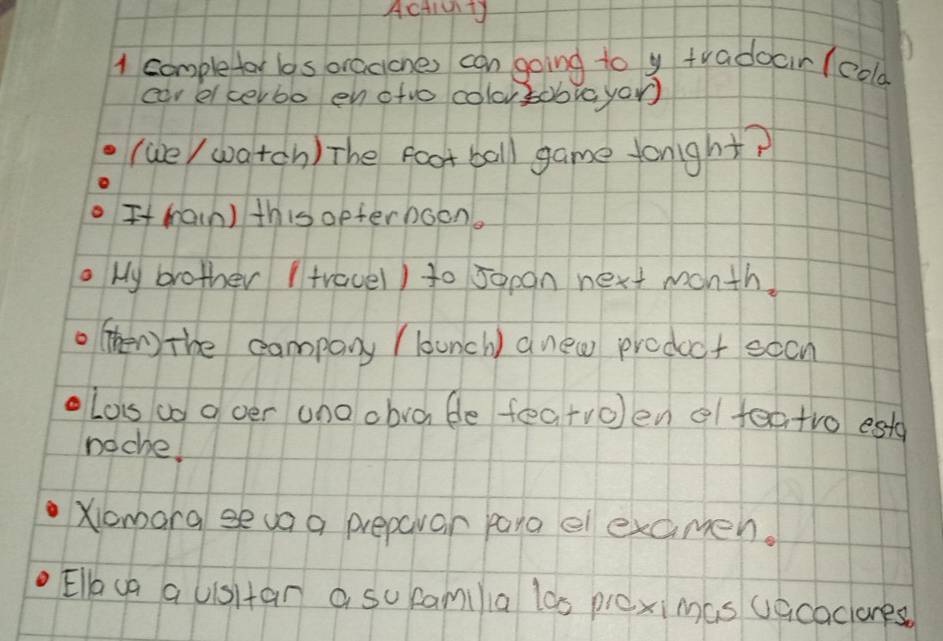 Activity
1 completar las oraciones con going to y traducir (colo
car el verbo en otro color subrayar)
• (we / watch) The foot ball game tonight?
• It (rain) this opternoon.
• My brother (travel) to Japan next month.
• (Then) The company (launch) a new product soon
• Luis va a ver una obra (de teatro) en el teatro esta
noche.
• Xiomara se va a preparar para el examen.
• Ella va a visitar a su familia las proximas vacaciones.